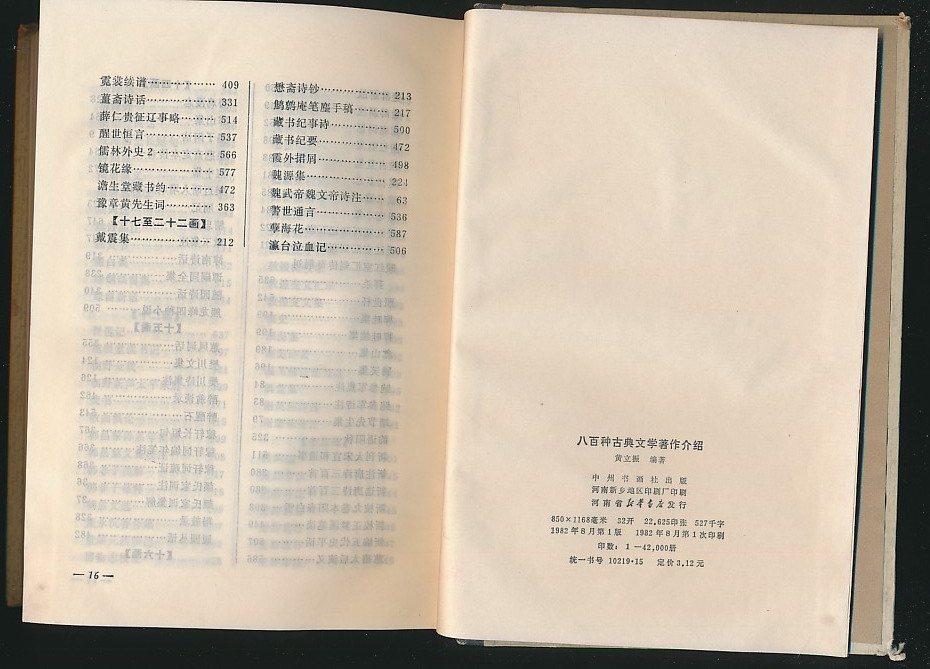 霓裳续谱……………… 409
薑斋诗话……………… 331
薛仁贵征辽事略……… 514
醒世恒言……………… 537
儒林外史 2 …………… 566
镜花缘………………… 577
澹生堂藏书约………… 472
豫章黄先生词………… 363
【十七至二十二画】
戴震集………………… 212
懋斋诗钞……………… 213
鹪鹩庵笔麈手稿……… 217
藏书纪事诗…………… 500
藏书纪要……………… 472
霞外捃屑……………… 498
魏源集………………… 224
魏武帝魏文帝诗注…… 63
警世通言……………… 536
孽海花………………… 587
瀛台泣血记…………… 506
— 16 —
八百种古典文学著作介绍
黄立振 编著
中州书画社出版
河南新乡地区印刷厂印刷
河南省新华书店发行
850×1168毫米 32开 22.625印张 527千字
1982年8月第1版 1982年8月第1次印刷
印数：1—42,000册
统一书号 10219·15 定价3.12元